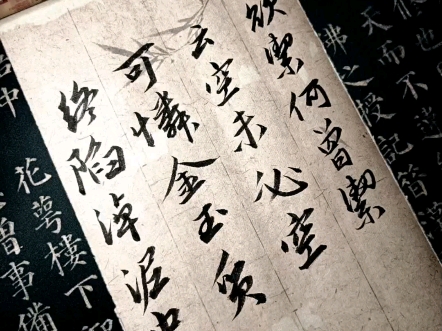 天而不
佛之授記簡
欲潔何曾潔
云空未必空
可憐金玉質
終陷淖泥中
花萼樓下
曾事備
中